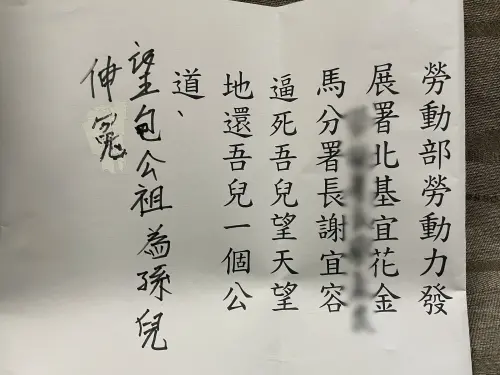 勞動部勞動力發
展署北基宜花金
馬分署長謝宜容
逼死吾兒望天望
地還吾兒一個公
道、
望包公祖為孫兒
伸冤